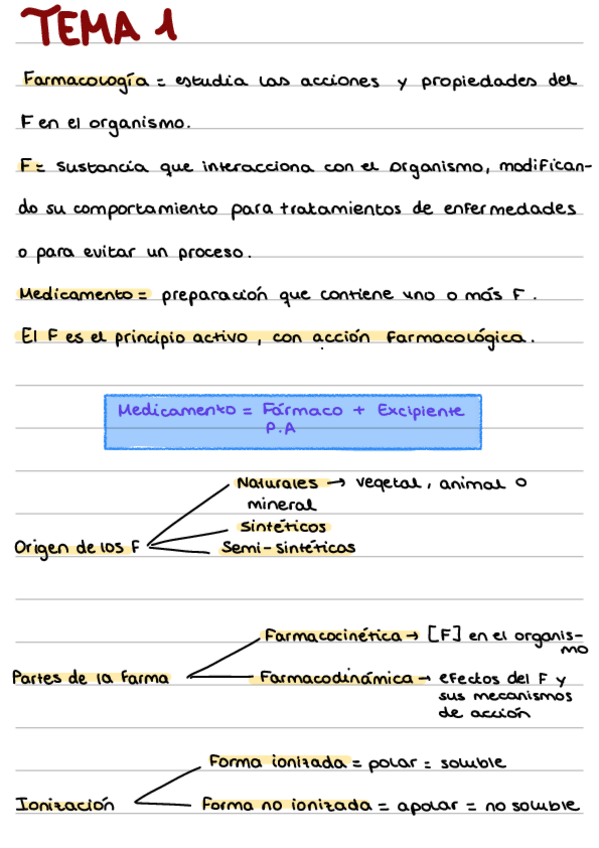 TEMA 1
Farmacología = estudia las acciones y propiedades del
F en el organismo.
F = sustancia que interacciona con el organismo, modifican-
do su comportamiento para tratamientos de enfermedades
o para evitar un proceso.
Medicamento = preparación que contiene uno o más F.
El F es el principio activo, con acción farmacológica.
Medicamento = Fármaco + Excipiente
P.A
Naturales → vegetal, animal o
mineral
Sintéticos
Origen de los F
Semi-sintéticos
Farmacocinética → [F] en el organis-
mo
Partes de la farma
Farmacodinámica → efectos del F y
sus mecanismos
de acción
Forma ionizada = polar = soluble
Ionización
Forma no ionizada = apolar = no soluble